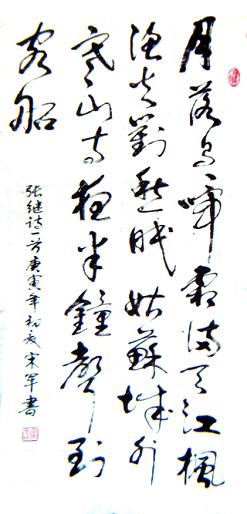 月落乌啼霜满天江楓
渔火對愁眠姑蘇城外
寒山寺夜半鐘聲到
客船
张继诗一首庚寅年初夏宋军書